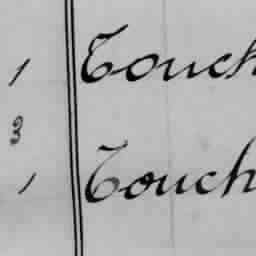 1 Touch
3
1 Touch